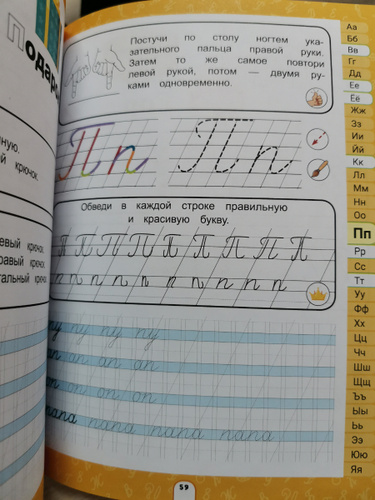 Подар
ную.
й крючок.
евый крючок.
равый крючок
тальный крючок
Постучи по столу ногтем ука-
зательного пальца правой руки.
Затем то же самое повтори
левой рукой, потом — двумя ру-
ками одновременно.
П п П п
Обведи в каждой строке правильную
и красивую букву.
П П П П П П П П П
п п п п п п п п п
пу пу пу пу
ап ап ап ап
оп оп оп оп
папа папа папа папа
59
Аа
Бб
Вв
Гг
Дд
Ее
Ёё
Жж
Зз
Ии
Йй
Кк
Лл
Мм
Нн
Оо
Пп
Рр
Сс
Тт
Уу
Фф
Хх
Цц
Чч
Шш
Щщ
Ъъ
Ыы
Ьь
Ээ
Юю
Яя